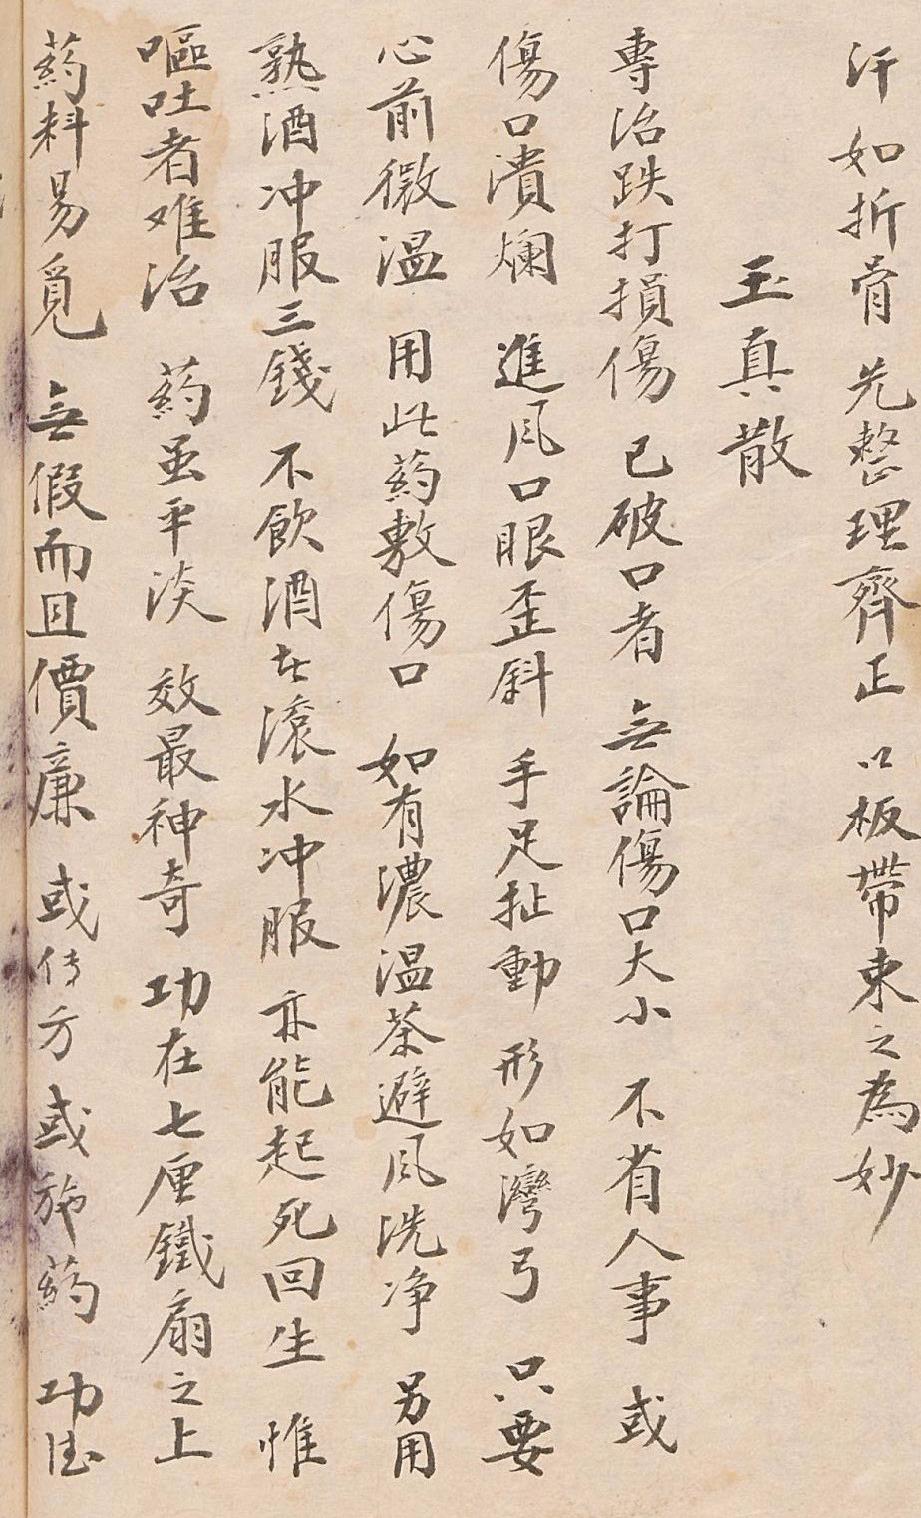 汗如折骨 先整理齊正 以板帶束之為妙
玉真散
專治跌打損傷 已破口者 無論傷口大小 不省人事 或
傷口潰爛 進风口眼歪斜 手足扯動 形如灣弓 只要
心前微溫 用此药敷傷口 如有濃溫茶避风洗净 另用
熟酒冲服三錢 不飲酒在滾水冲服 亦能起死回生 惟
嘔吐者难治 药虽平淡 效最神奇 功在七厘鐵扇之上
药料易覓 無假而且價廉 或传方 或施药 功德